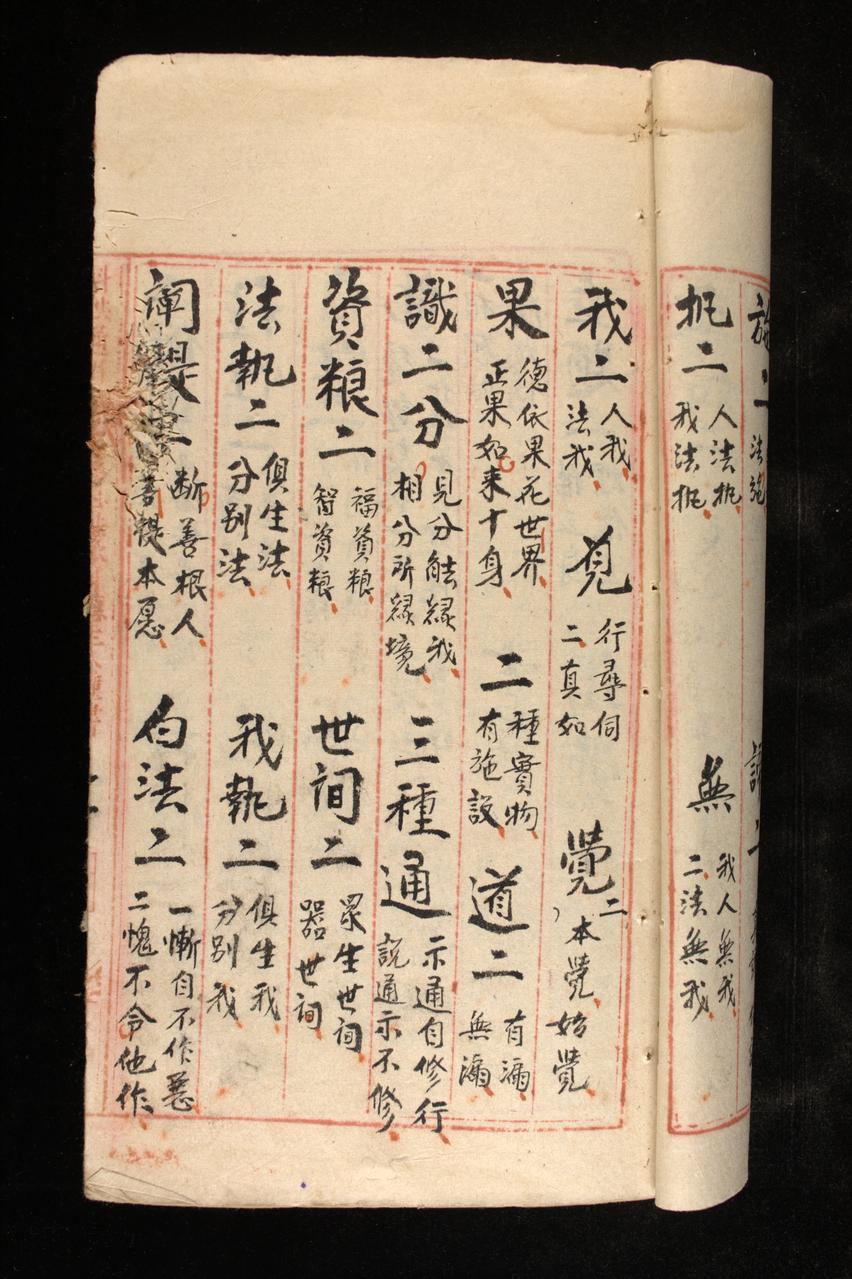 施二 法施
扼二 人法扼 我法扼
無 我人無我 二法無我
我二 人我 法我
覓 行尋伺 二真如
覺二 本覺 始覺
果 德依果花世界 正果如來十身
二 種實物 有施設
道二 有漏 無漏
識二分 見分能緣我 相分所緣境
三種通 示通自修行 說通示不修
資粮二 福資粮 智資粮
世间二 眾生世间 器世间
法執二 俱生法 分别法
我執二 俱生我 分别我
阐提二 断善根人 菩提本愿
白法二 一慚自不作惡 二愧不令他作